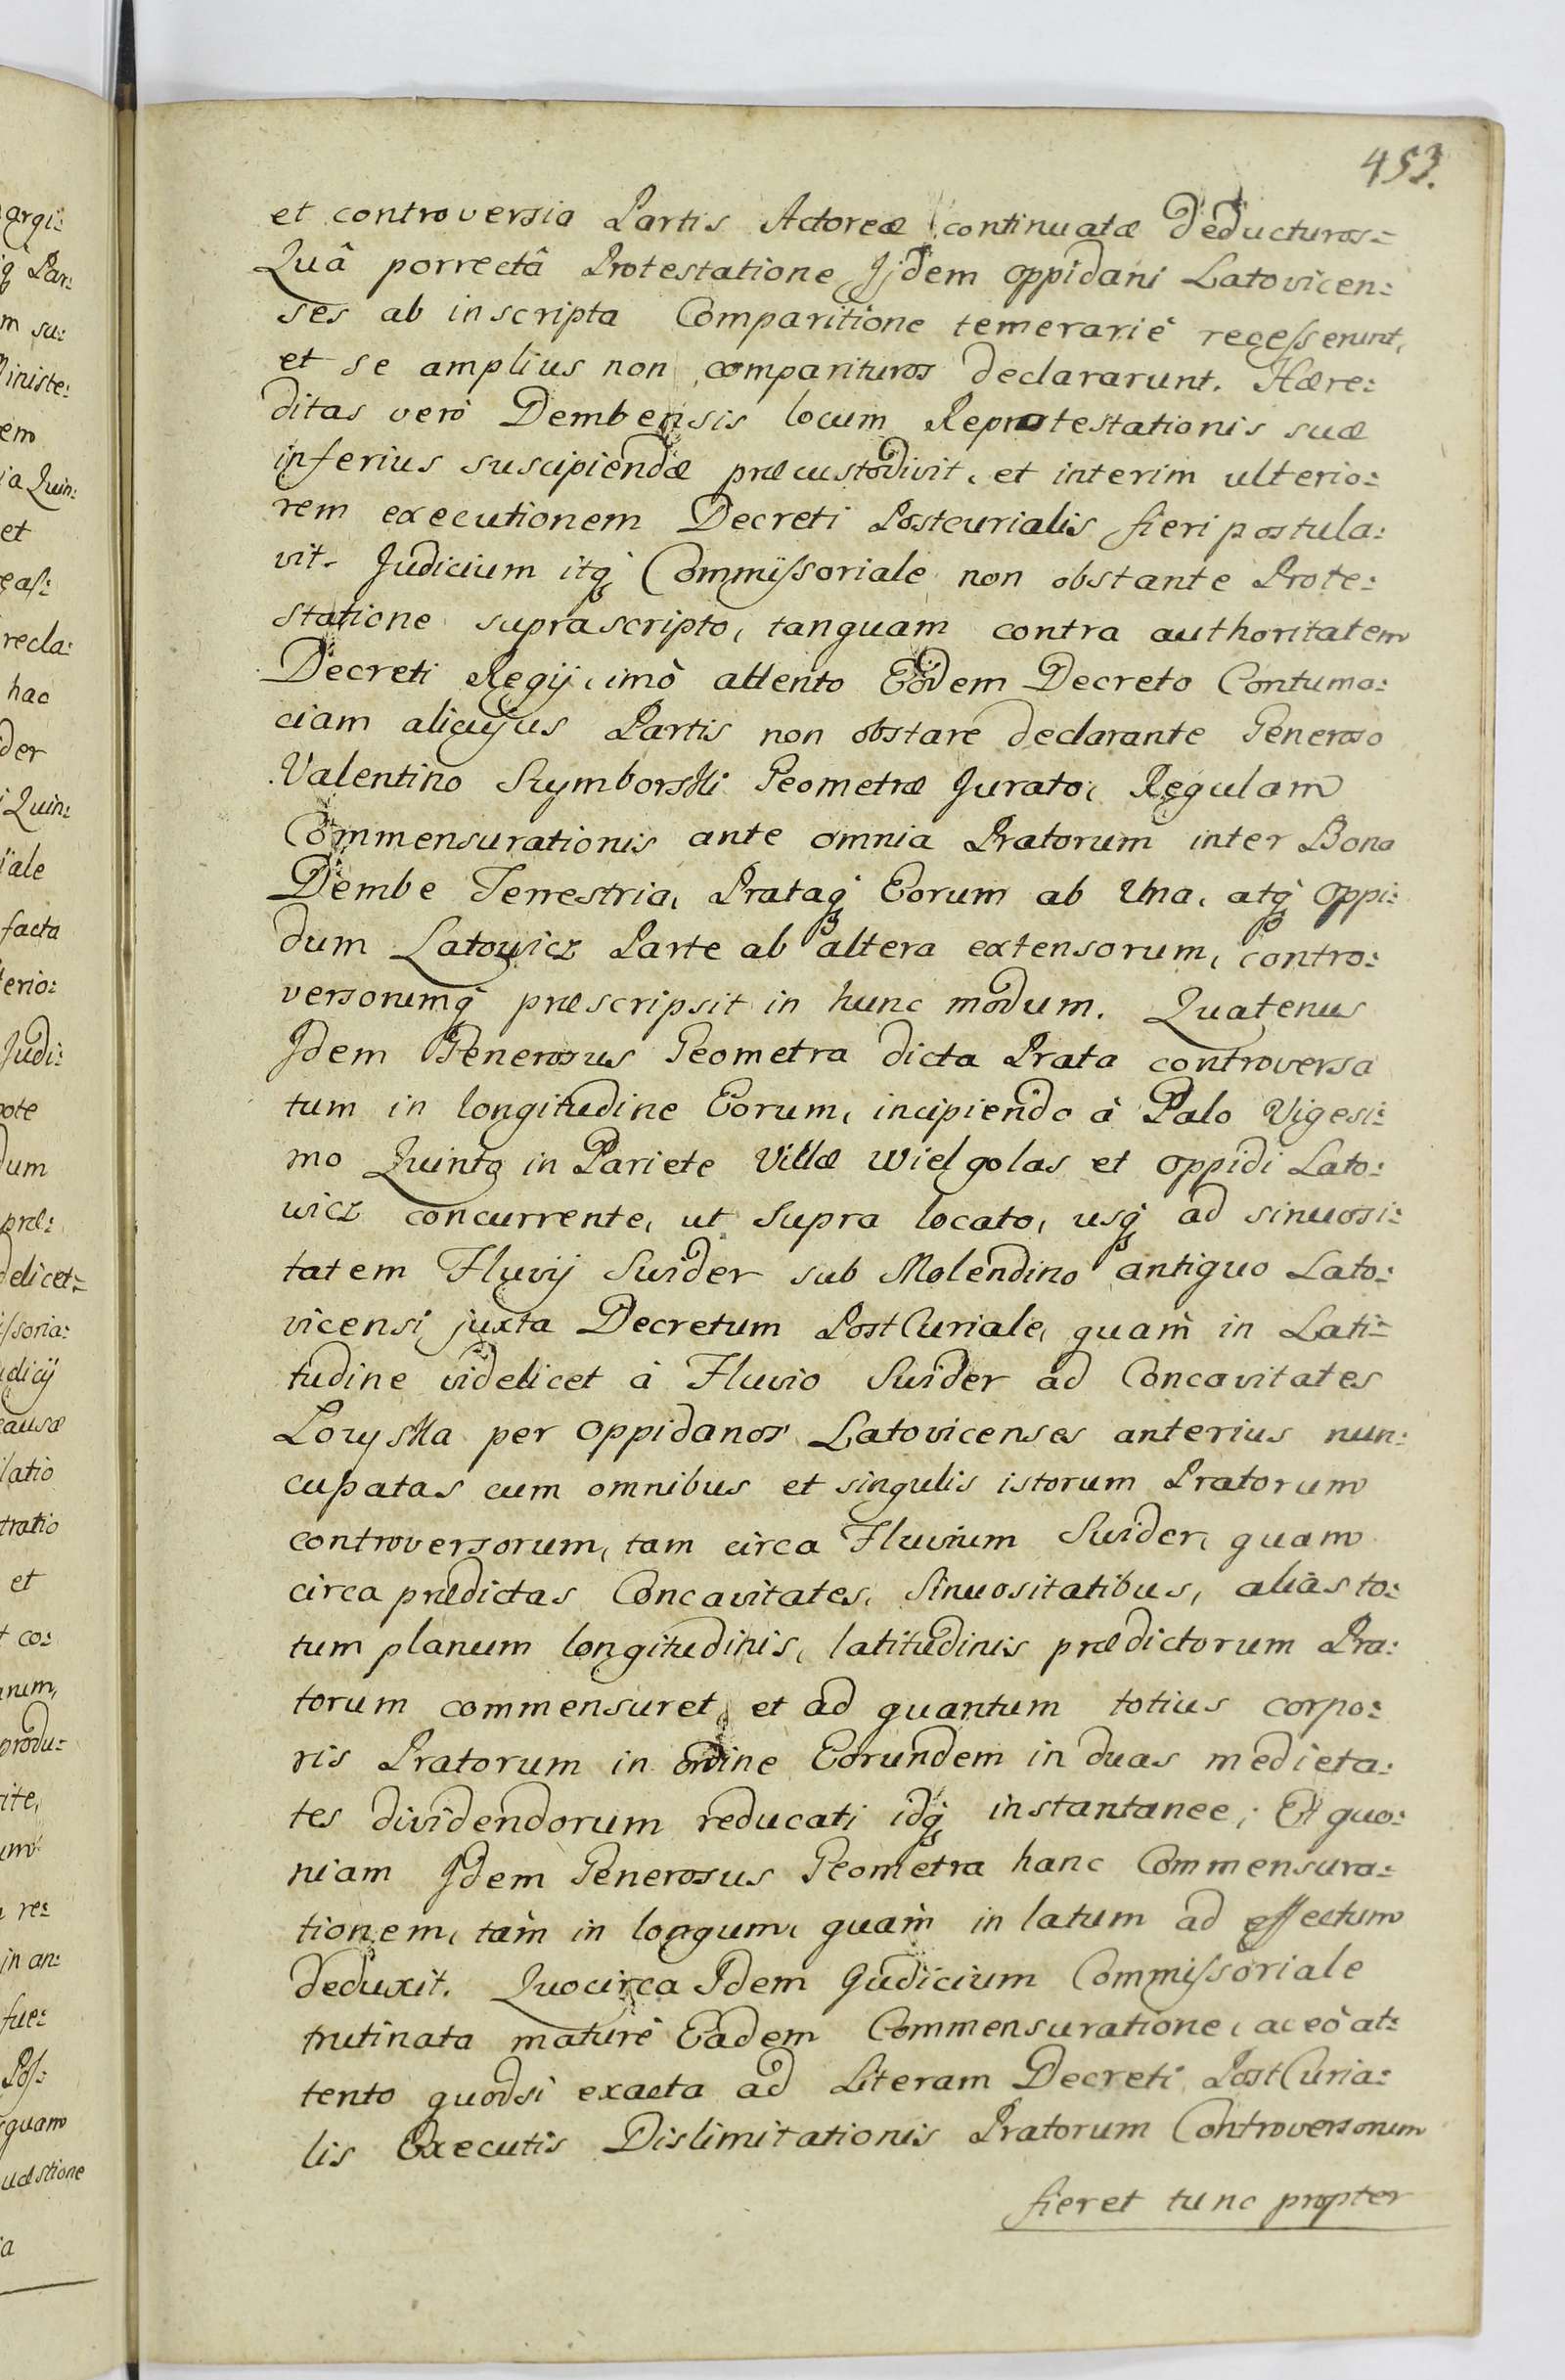 453.
et controversia Partis Actoreæ continuatæ deducturos=
Quâ porrectâ Protestatione Ijdem oppidani Latovicen:
ses ab inscripta Comparitione temerariè recesserunt,
et se amplius non comparituros declararunt. Hære:
ditas verò Dembensis locum Reprotestationis suæ
inferius suscipiendæ præcustodivit, et interim ulterio:
rem executionem Decreti Postcurialis fieri postula:
vit. Judicium itq Commissoriale non obstante Prote:
statione suprascripto, tanquam contra authoritatem
Decreti Regij, imò attento Eodem Decreto Contuma:
ciam alicujus Partis non obstare declarante Generoso
Valentino Szymborski Geometræ Jurato, Regulam
Commensurationis ante omnia Pratorum inter Bona
Dembe Terrestria, Prataq Eorum ab Una, atq Oppi:
dum Latowicz Parte ab altera extensorum, contro:
versorumq præscripsit in hunc modum. Quatenus
Idem Generosus Geometra dicta Prata controversa
tum in longitudine Eorum, incipiendo à Palo Vigesi:
mo Quinto in Pariete Villæ Wielgolas et Oppidi Lato:
wicz concurrente, ut supra locato, usq ad sinuosi:
tatem Fluvij Swider sub Molendino antiquo Lato:
vicensi juxta Decretum PostCuriale, quam in Lati=
tudine videlicet à Fluvio Swider ad Concavitates
Lozyska per Oppidanos Latovicenses anterius nun:
cupatas cum omnibus et singulis istorum Pratorum
controversorum, tam circa Fluvium Swider, quam
circa prædictas Concavitates, Sinuositatibus, aliàs to:
tum planum longitudinis, latitudinis prædictorum Pra:
torum commensuret, et ad quantum totius corpo:
ris Pratorum in ordine Eorundem in duas medieta:
tes dividendorum reducat, idq instantanee; Et quo:
niam Idem Generosus Geometra hanc Commensura:
tionem, tàm in longum, quàm in latum ad effectum
deduxit. Quocirca Idem Judicium Commissoriale
trutinata maturè Eadem Commensuratione, ac eò at:
tento quodsi exacta ad Literam Decreti PostCuria:
lis Executis Dislimitationis Pratorum Controversorum
fieret tunc propter